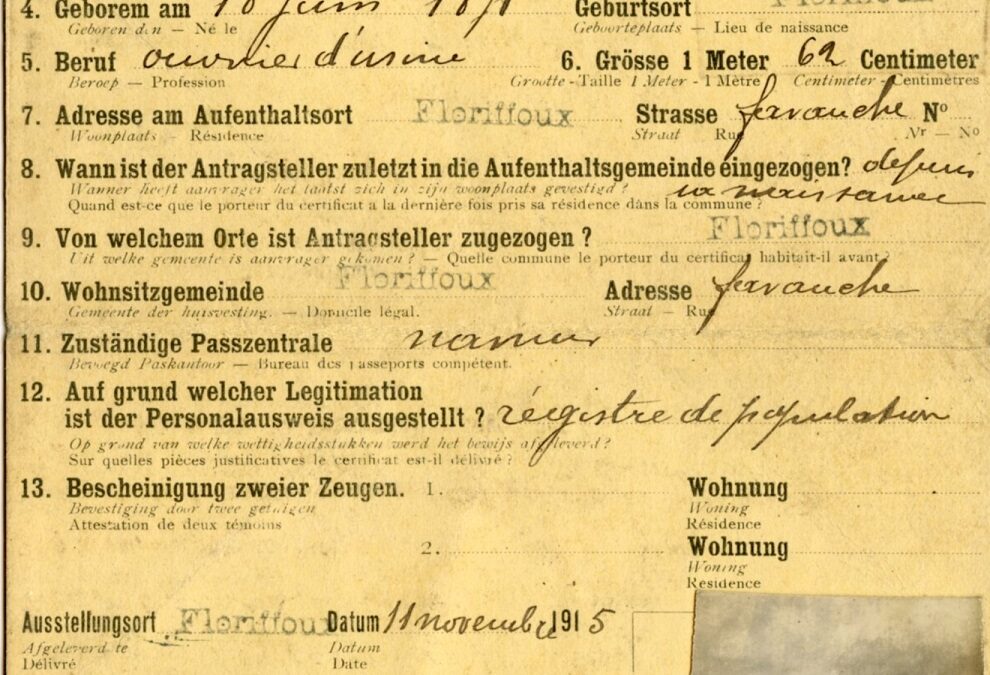 4. Geborem am 10 juin 18 Geburtsort Floriffoux
Geboren den — Né le Geboorteplaats — Lieu de naissance
5. Beruf ouvrier d'usine 6. Grösse 1 Meter 62 Centimeter
Beroep — Profession Grootte - Taille 1 Meter - 1 Mètre Centimeter - Centimètres
7. Adresse am Aufenthaltsort Floriffoux Strasse favauche Nº
Woonplaats — Résidence Straat Rue Nr — No
8. Wann ist der Antragsteller zuletzt in die Aufenthaltsgemeinde eingezogen? depuis
Wanneer heeft aanvrager het laatst zich in zijn woonplaats gevestigd? sa naissance
Quand est-ce que le porteur du certificat a la dernière fois pris sa résidence dans la commune?
9. Von welchem Orte ist Antragsteller zugezogen ? Floriffoux
Uit welke gemeente is aanvrager gekomen? — Quelle commune le porteur du certificat habitait-il avant?
10. Wohnsitzgemeinde Floriffoux Adresse favauche
Gemeente der huisvesting. — Domicile légal. Straat — Rue
11. Zuständige Passzentrale namur
Bevoegd Paskantoor — Bureau des passeports compétent.
12. Auf grund welcher Legitimation
ist der Personalausweis ausgestellt ? régistre de population
Op grond van welke wettigheidsstukken werd het bewijs afgeleverd?
Sur quelles pièces justificatives le certificat est-il délivré ?
13. Bescheinigung zweier Zeugen. 1. Wohnung
Bevestiging door twee getuigen Woning
Attestation de deux témoins Résidence
2. Wohnung
Woning
Residence
Ausstellungsort Floriffoux Datum 11 novembre 1915
Afgeleverd te Datum
Délivré Date